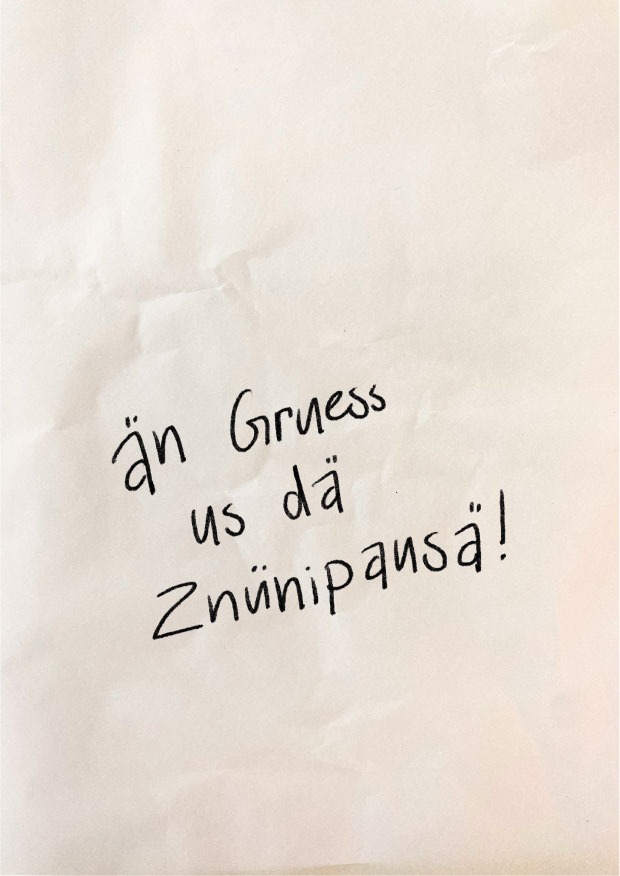 än Gruess
us dä
Znünipausä!